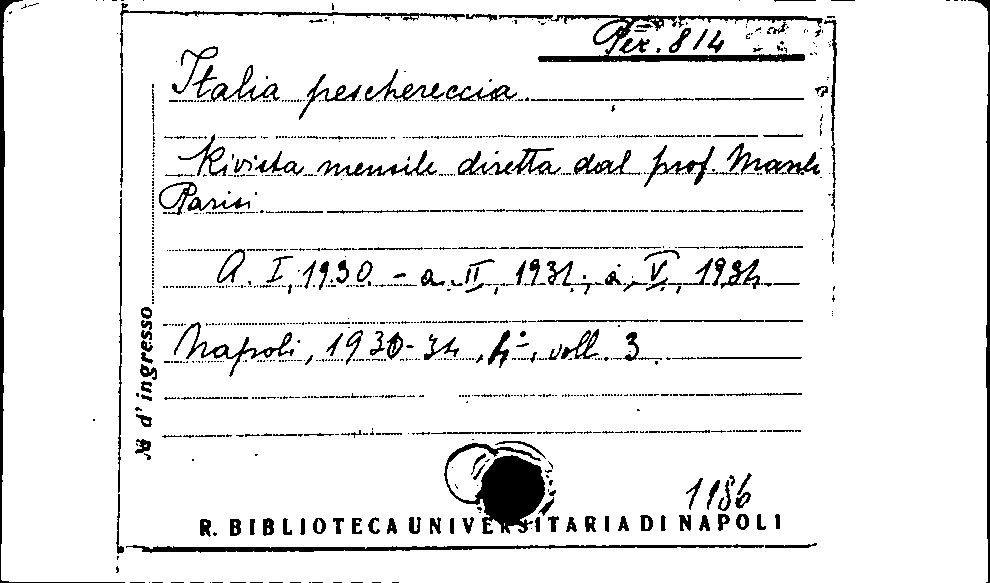 Per. 814
Italia peschereccia.
Rivista mensile diretta dal prof. Manli
Parisi.
A. I, 1930. - a. II, 1931; a. V., 1934.
Napoli, 1930-34, 4°, voll. 3.
N° d'ingresso
1186
R. BIBLIOTECA UNIVERSITARIA DI NAPOLI